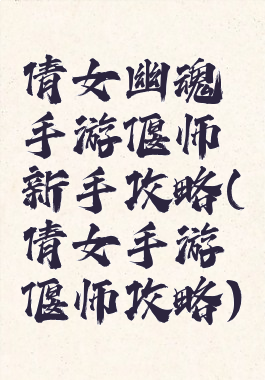 倩女幽魂
手游偃师
新手攻略(
倩女手游
偃师攻略)